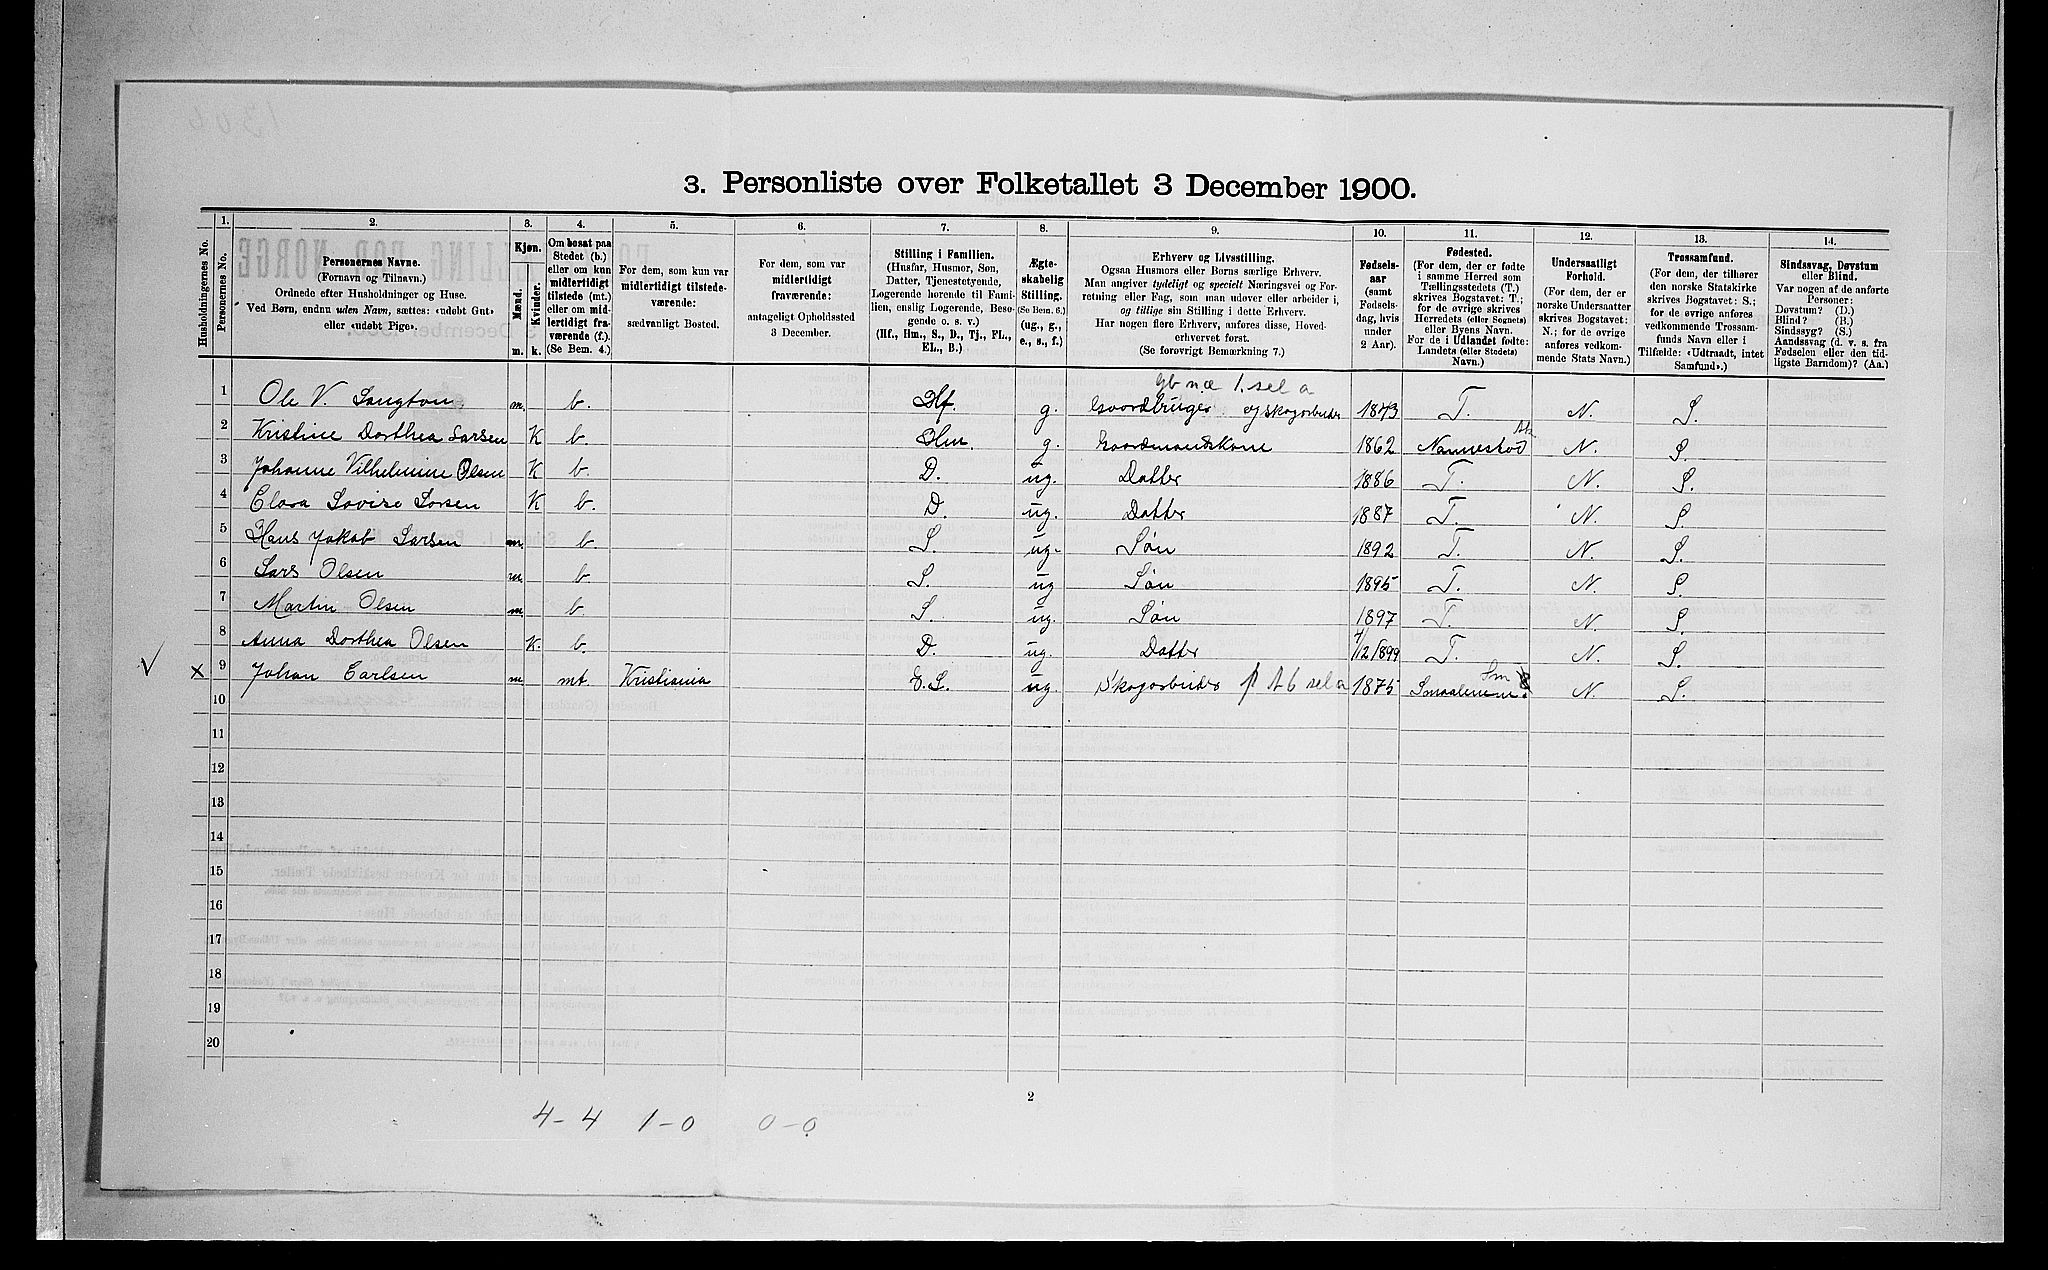 3. Personliste over Folketallet 3 December 1900.
1.
2.
3.
4.
5.
6.
7.
8.
9.
10.
11.
12.
13.
14.
Husholdningernes No.
Personernes No.
Personernes Navne.
(Fornavn og Tilnavn.)
Ordnede efter Husholdninger og Huse.
Ved Børn, endnu uden Navn, sættes: «udøbt Gut»
eller «udøbt Pige».
Kjøn.
Mænd.
Kvinder.
m.
k.
Om bosat paa
Stedet (b.)
eller om kun
midlertidigt
tilstede (mt.)
eller om mid-
lertidigt fra-
værende (f.).
(Se Bem. 4.)
For dem, som kun var
midlertidigt tilstede-
værende:
sædvanligt Bosted.
For dem, som var
midlertidigt
fraværende:
antageligt Opholdssted
3 December.
Stilling i Familien.
(Husfar, Husmor, Søn,
Datter, Tjenestetyende,
Logerende hørende til Fami-
lien, enslig Logerende, Besø-
gende o. s. v.)
(Hf., Hm., S., D., Tj., FL.,
EL., B.)
Ægte-
skabelig
Stilling.
(Se Bem. 6.)
(ug., g.,
e., s., f.)
Erhverv og Livsstilling.
Ogsaa Husmors eller Børns særlige Erhverv.
Man angiver tydeligt og specielt Næringsvei og For-
retning eller Fag, som man udøver eller arbeider i,
og tillige sin Stilling i dette Erhverv.
Har nogen flere Erhverv, anføres disse, Hoved-
erhvervet først.
(Se forøvrigt Bemærkning 7.)
Fødsels-
aar
(samt
Fødsels-
dag, hvis
under
2 Aar).
Fødested.
(For dem, der er fødte
i samme Herred som
Tællingsstedets (T.)
skrives Bogstavet: T.;
for de øvrige skrives
Herredets (eller Sognets)
eller Byens Navn.
For de i Udlandet fødte:
Landets (eller Stedets)
Navn.)
Undersaatligt
Forhold.
(For dem, der er
norske Undersaatter
skrives Bogstavet:
N.; for de øvrige
anføres vedkom-
mende Stats Navn.)
Trossamfund.
(For dem, der tilhører
den norske Statskirke
skrives Bogstavet: S.;
for de øvrige anføres
vedkommende Trossam-
funds Navn eller i
Tilfælde: «Udtraadt, intet
Samfund».)
Sindssvag, Døvstum
eller Blind.
Var nogen af de anførte
Personer:
Døvstum? (D.)
Blind? (B.)
Sindssyg? (S.)
Aandssvag (d. v. s. fra
Fødselen eller den tid-
ligste Barndom)? (Aa.)
gb næ 1. sel a
1 Ole V. Langton m. b. Hf. g. Gaardbruger og skogarbeider 1873 T. N. S.
2 Kristine Dorthea Larsen K b. Hm. g. Gaardmandskone 1862 Nannestad N. S.
3 Johanne Vilhelmine Olsen K b. D. ug. Datter 1886 T. N. S.
4 Clara Lovise Larsen K b. D. ug. Datter 1887 T. N. S.
5 Hans Jakob Larsen m. b. S. ug. Søn 1892 T. N. S.
6 Lars Olsen m. b. S. ug Søn 1895 T. N. S.
7 Martin Olsen m. b. S. ug. Søn 1897 T. N. S.
8 Anna Dorthea Olsen K. b. D. ug. Datter 4/12 1899 T. N. S.
√ x 9 Johan Carlsen m mt. Kristiania E.L. ug. Skogarbeider 1875 Smaalenene. N. S.
10
11
12
13
14
15
16
17
18
19
20
2
4-4 1-0 0-0